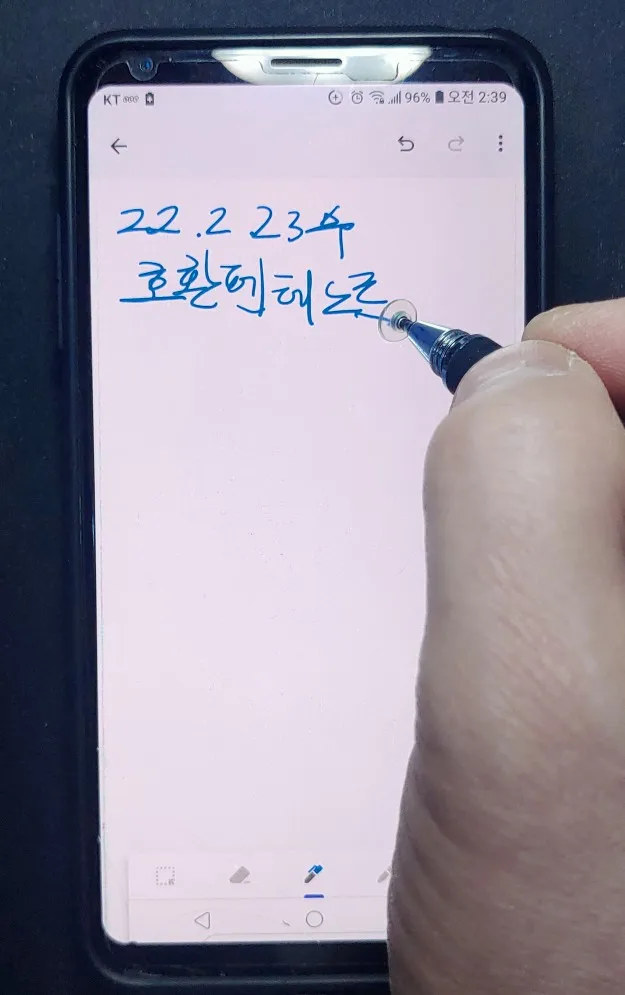 KT 96% 오전 2:39
22.2 23수
호환펜 테스트